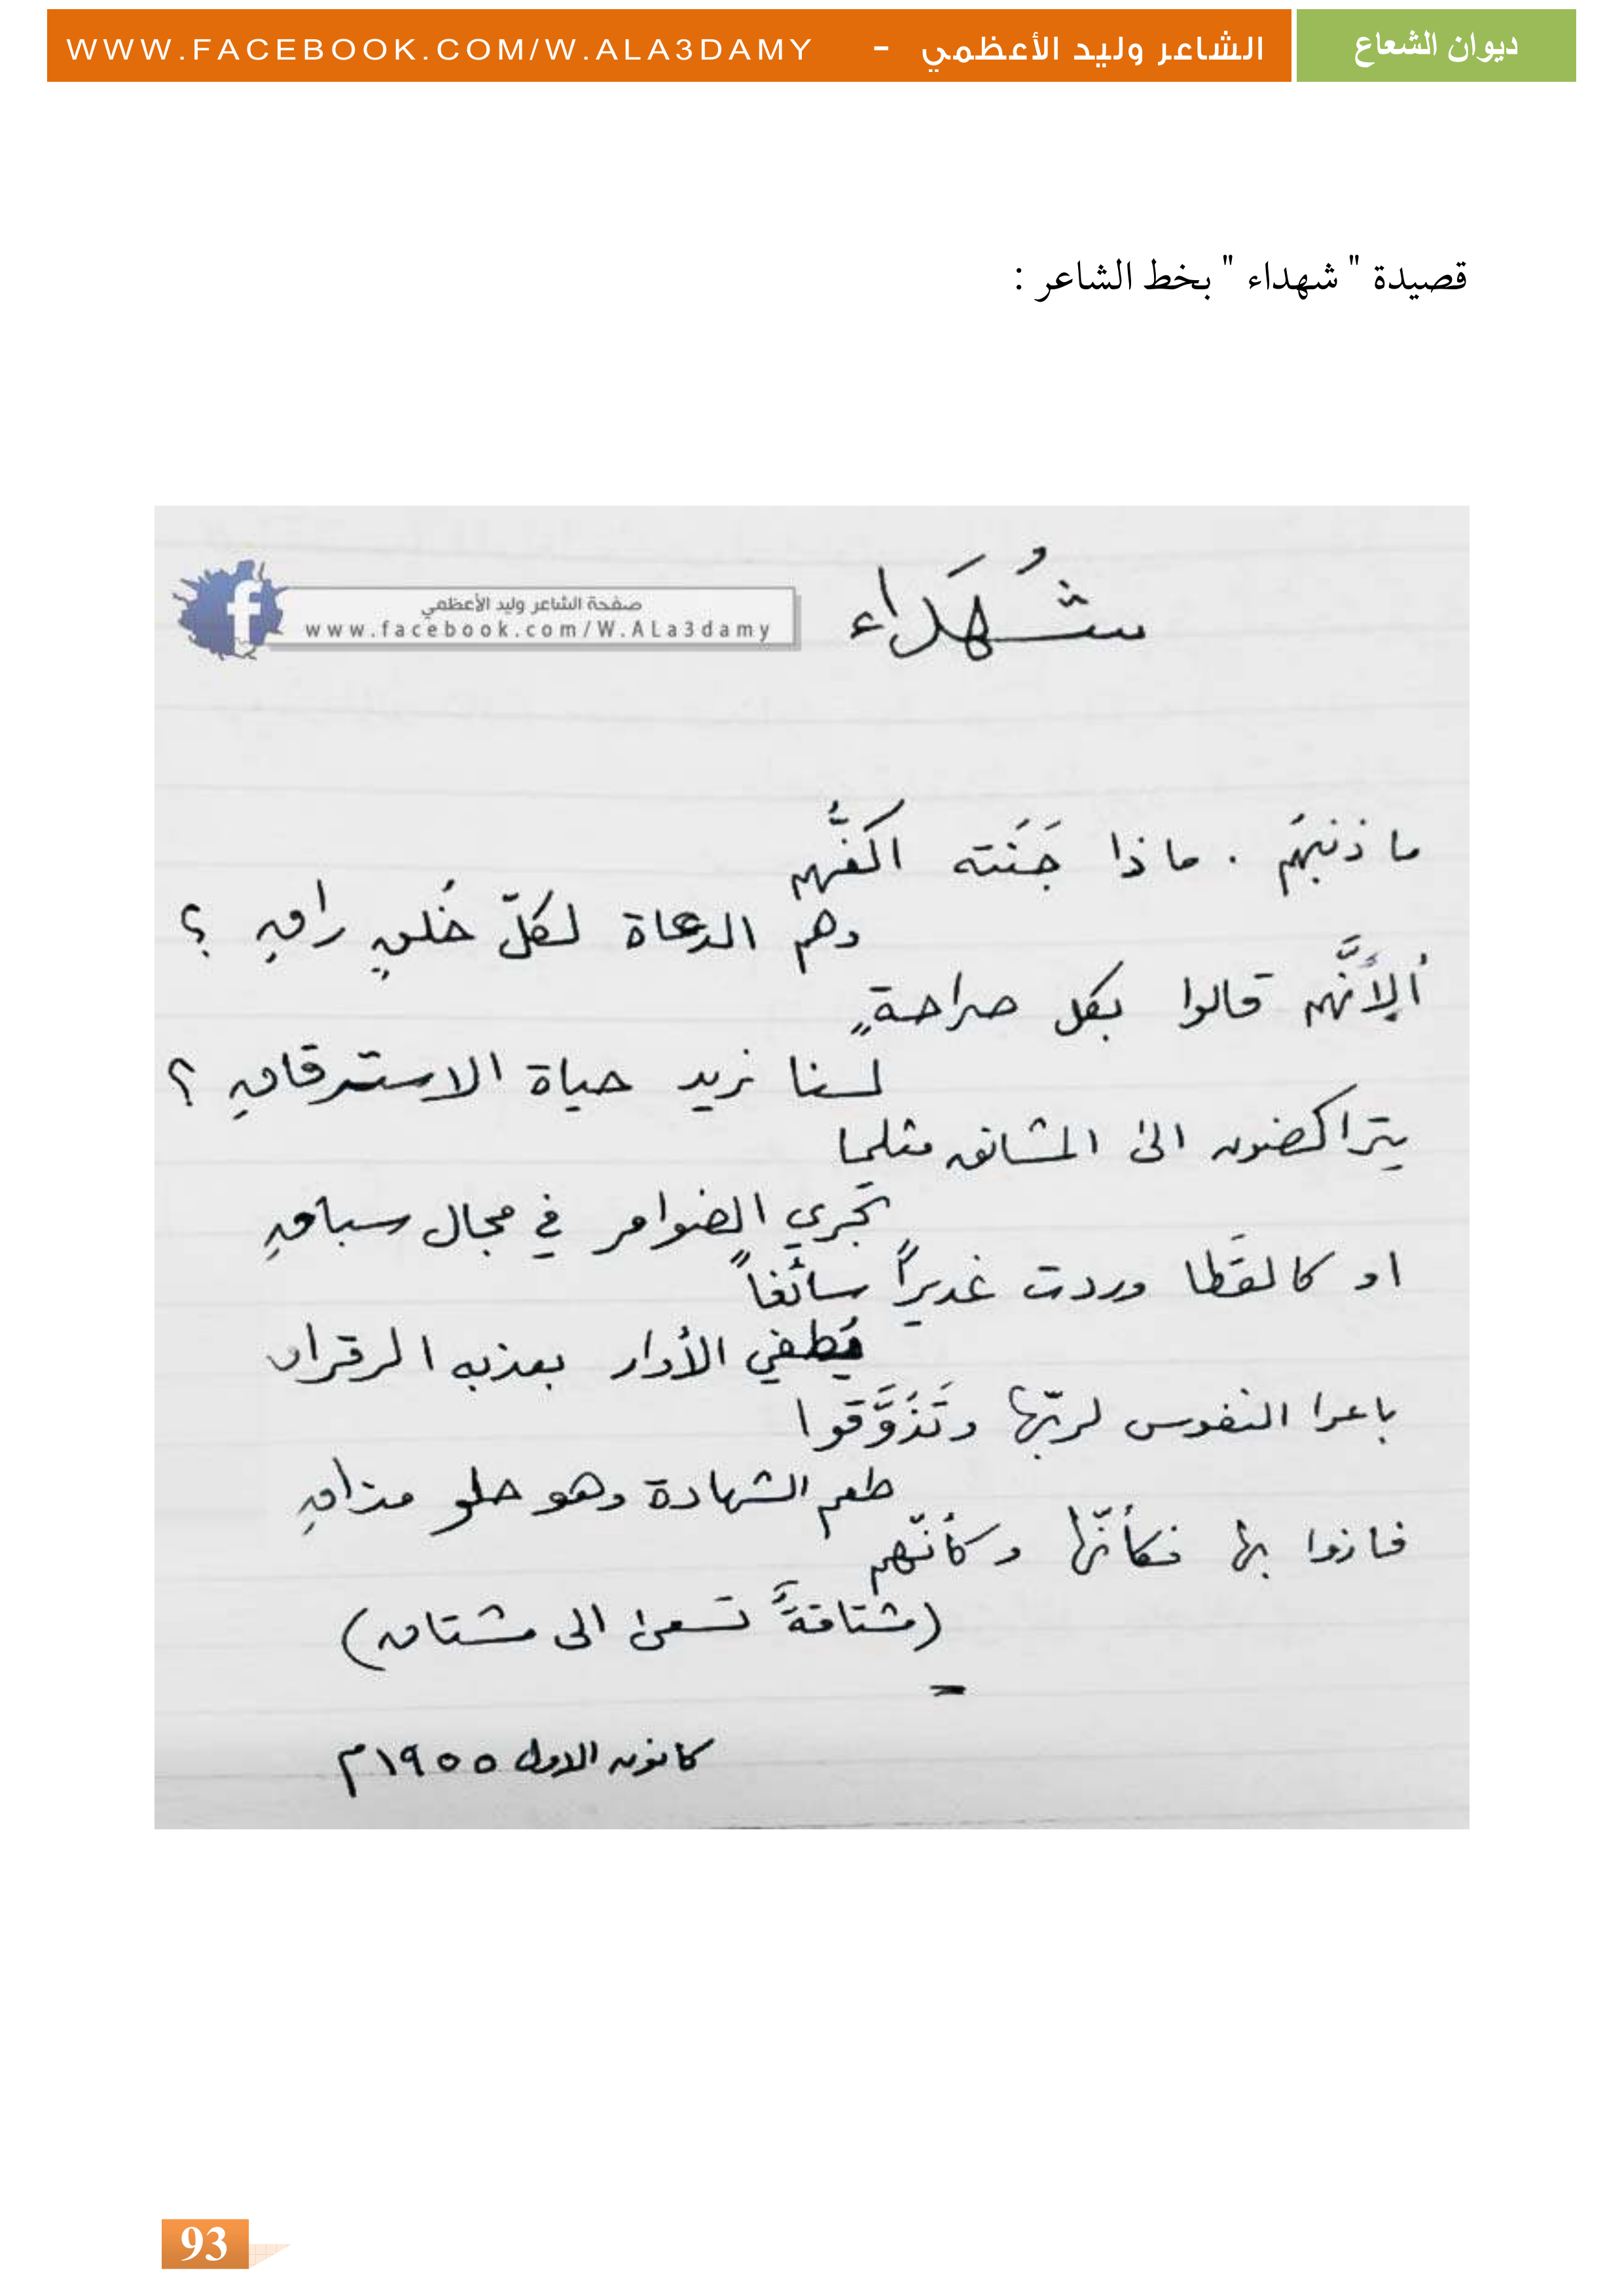 ديوان الشعاع
الشاعر وليد الأعظمي - WWW.FACEBOOK.COM/W.ALA3DAMY
قصيدة " شهداء " بخط الشاعر :
شُهَداء
صفحة الشاعر وليد الأعظمي
www.facebook.com/W.ALa3damy
ما ذنبهُم . ماذا جَنَته اكفُّهم
وهم الدعاة لكلّ خُلقٍ راقِ ؟
ألِأنَّهم قالوا بكل صراحةٍ
لسنا نريد حياة الاسترقاقِ ؟
يتراكضون الى المشانق مثلما
تجري الضوامر في مجال سباقِ
او كالقَطا وردت غديراً سائغاً
يُطفي الأوار بعذبه الرقراق
باعوا النفوس لربّها وتَذَوَّقوا
طعم الشهادة وهو حلو مذاقِ
فازوا بها فكأنّها وكأنّهم
(مشتاقةً تسعى الى مشتاق)
كانون الاول ١٩٥٥م
93